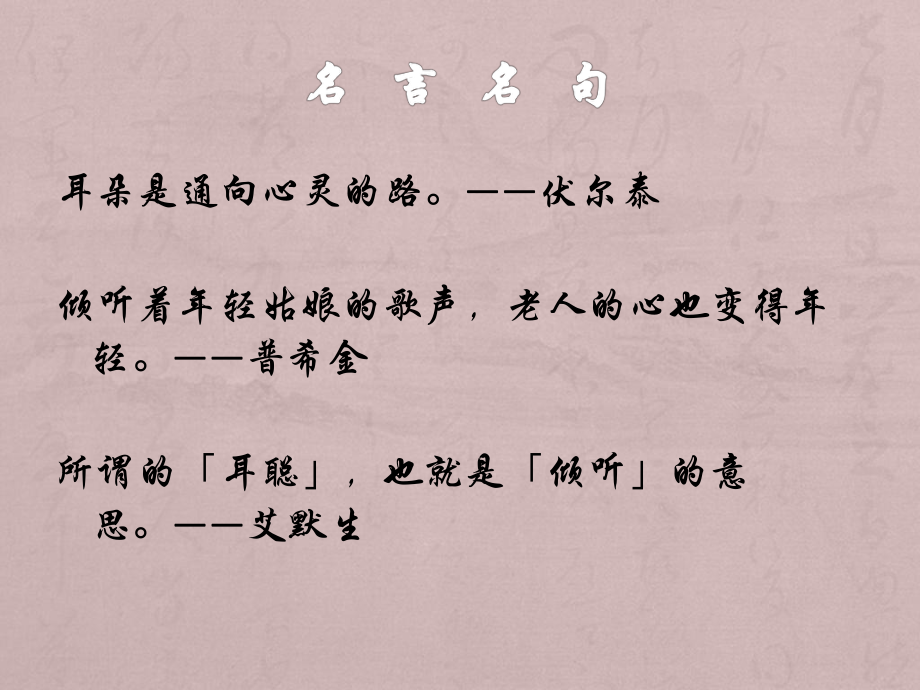 名 言 名 句
耳朵是通向心灵的路。——伏尔泰
倾听着年轻姑娘的歌声，老人的心也变得年
轻。——普希金
所谓的「耳聪」，也就是「倾听」的意
思。——艾默生